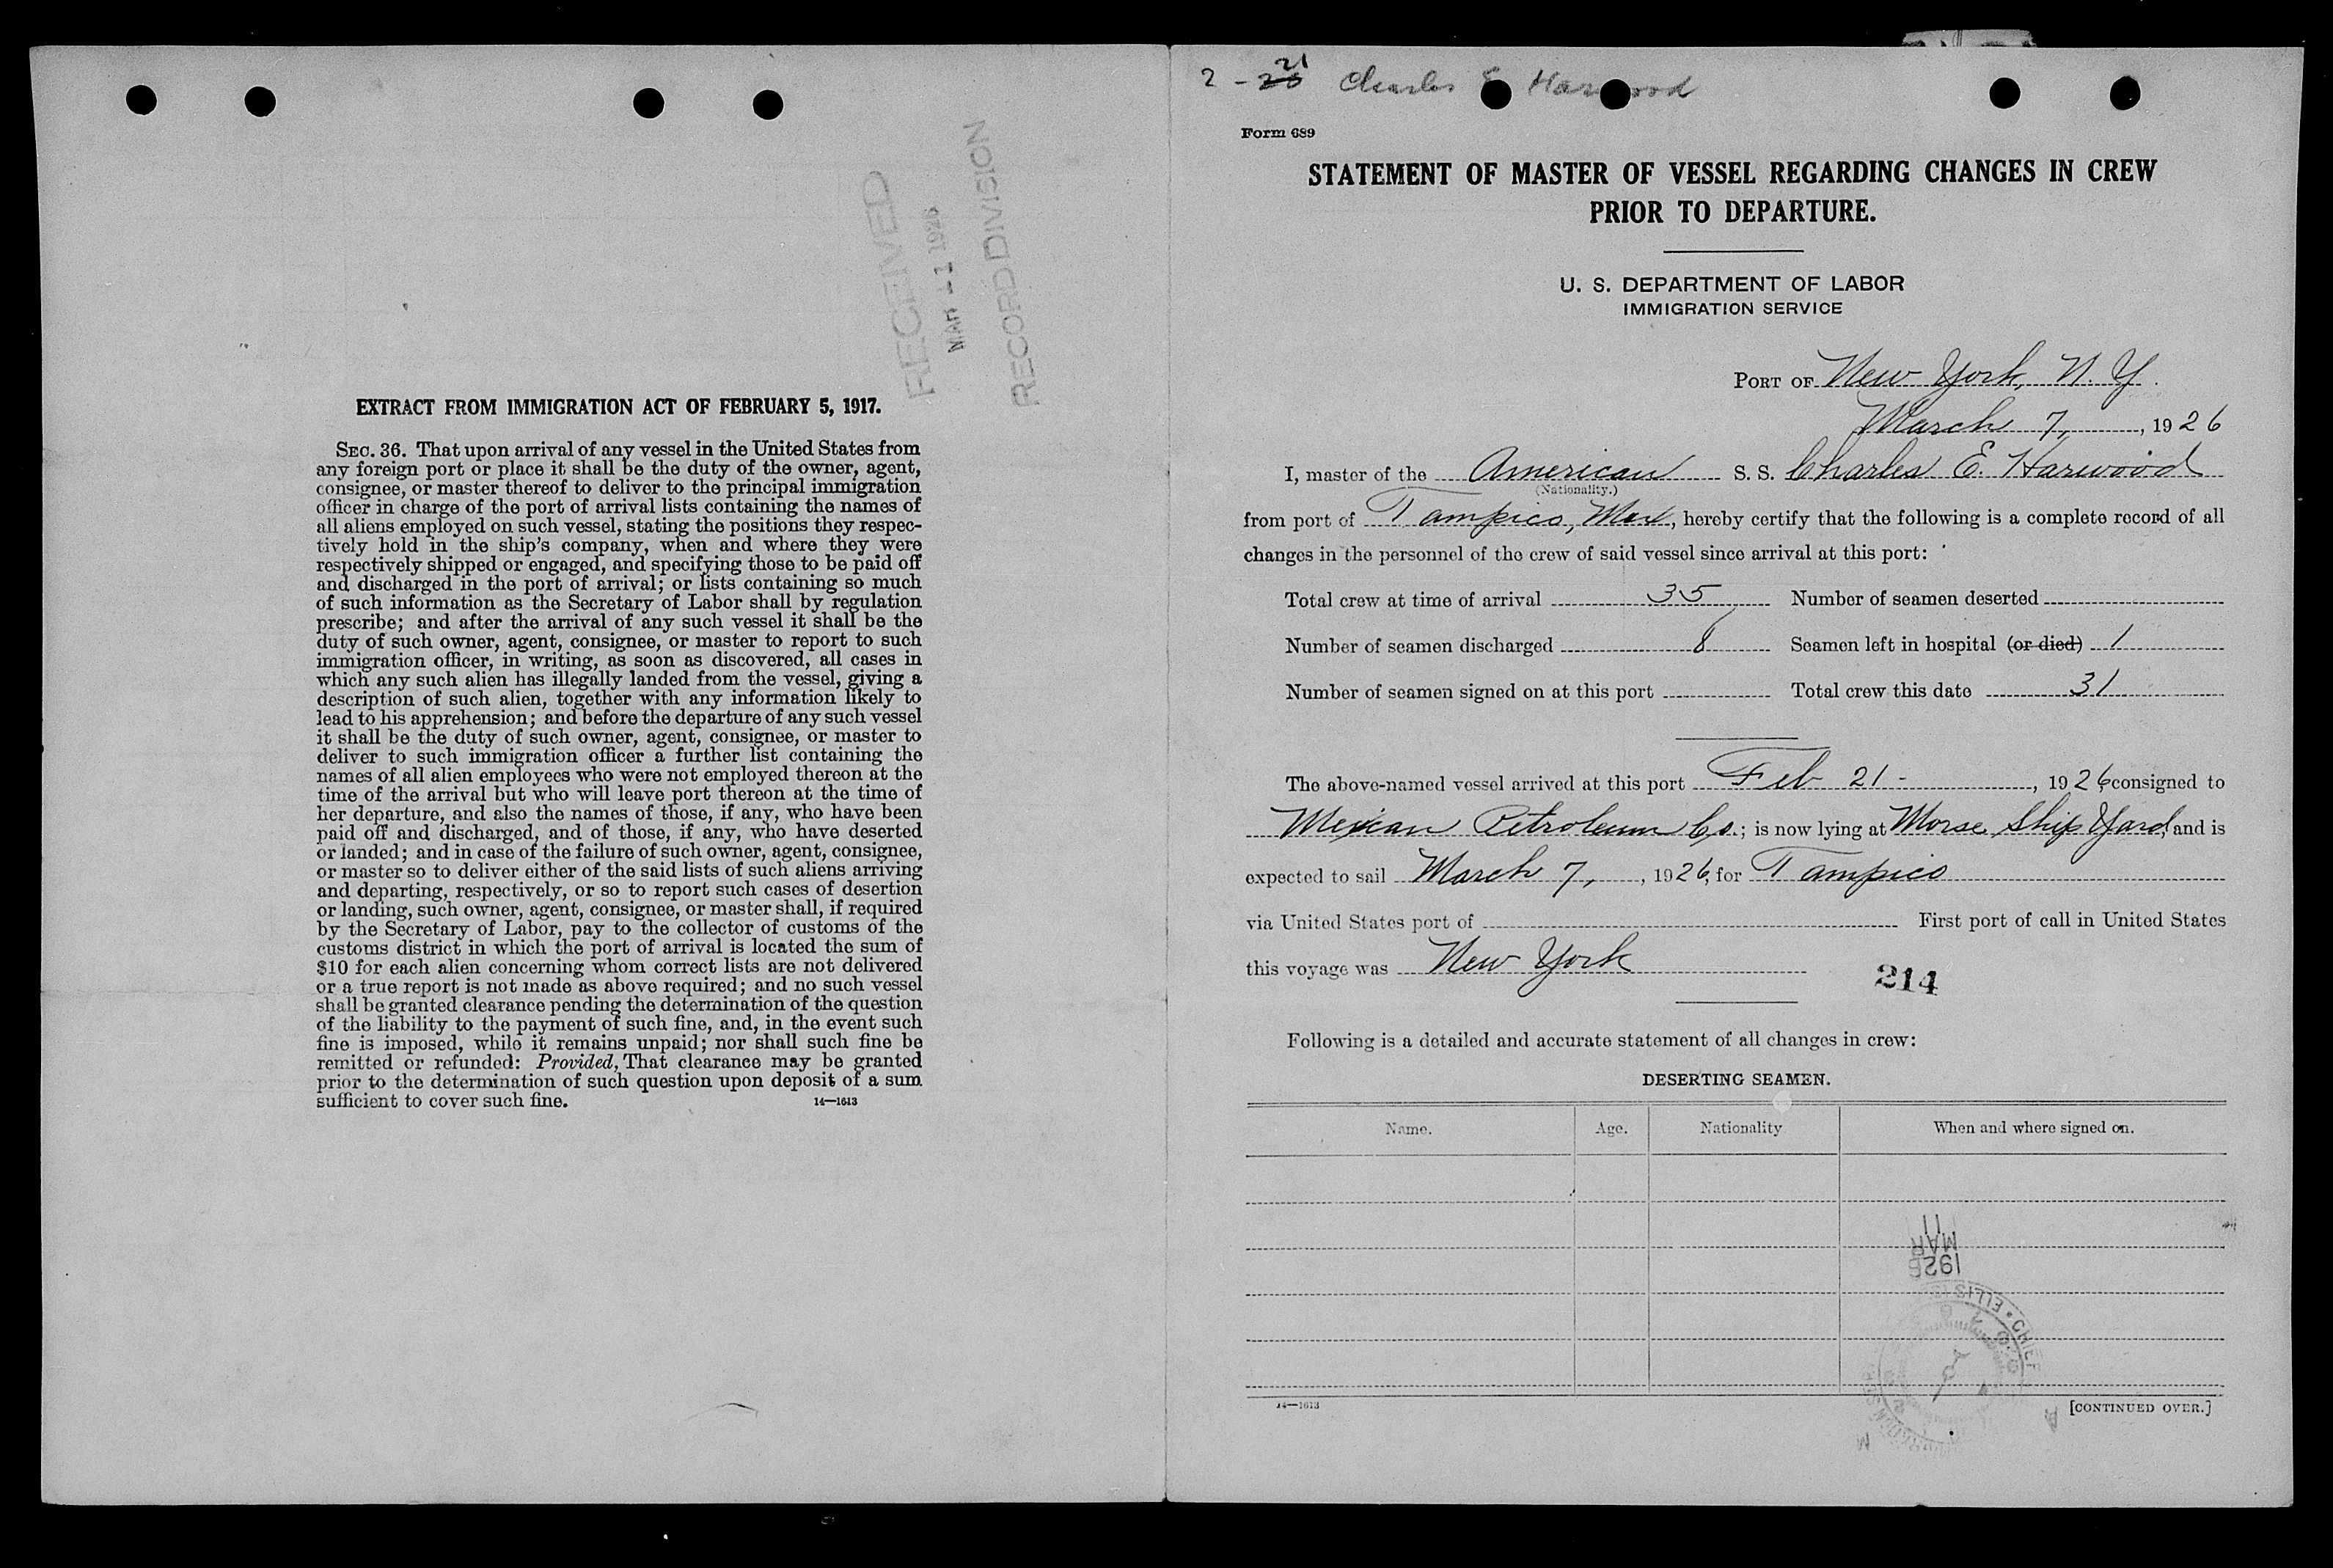 RECEIVED
MAR 11 1926
RECORD DIVISION
EXTRACT FROM IMMIGRATION ACT OF FEBRUARY 5, 1917.
SEC. 36. That upon arrival of any vessel in the United States from
any foreign port or place it shall be the duty of the owner, agent,
consignee, or master thereof to deliver to the principal immigration
officer in charge of the port of arrival lists containing the names of
all aliens employed on such vessel, stating the positions they respec-
tively hold in the ship's company, when and where they were
respectively shipped or engaged, and specifying those to be paid off
and discharged in the port of arrival; or lists containing so much
of such information as the Secretary of Labor shall by regulation
prescribe; and after the arrival of any such vessel it shall be the
duty of such owner, agent, consignee, or master to report to such
immigration officer, in writing, as soon as discovered, all cases in
which any such alien has illegally landed from the vessel, giving a
description of such alien, together with any information likely to
lead to his apprehension; and before the departure of any such vessel
it shall be the duty of such owner, agent, consignee, or master to
deliver to such immigration officer a further list containing the
names of all alien employees who were not employed thereon at the
time of the arrival but who will leave port thereon at the time of
her departure, and also the names of those, if any, who have been
paid off and discharged, and of those, if any, who have deserted
or landed; and in case of the failure of such owner, agent, consignee,
or master so to deliver either of the said lists of such aliens arriving
and departing, respectively, or so to report such cases of desertion
or landing, such owner, agent, consignee, or master shall, if required
by the Secretary of Labor, pay to the collector of customs of the
customs district in which the port of arrival is located the sum of
$10 for each alien concerning whom correct lists are not delivered
or a true report is not made as above required; and no such vessel
shall be granted clearance pending the determination of the question
of the liability to the payment of such fine, and, in the event such
fine is imposed, while it remains unpaid; nor shall such fine be
remitted or refunded: Provided, That clearance may be granted
prior to the determination of such question upon deposit of a sum
sufficient to cover such fine. 14—1613
2 - 21 Charles E Harwood
Form 689
STATEMENT OF MASTER OF VESSEL REGARDING CHANGES IN CREW
PRIOR TO DEPARTURE.
U. S. DEPARTMENT OF LABOR
IMMIGRATION SERVICE
PORT OF New York, N. Y.
March 7, , 1926
I, master of the American S. S. Charles E. Harwood
(Nationality.)
from port of Tampico, Mex, hereby certify that the following is a complete record of all
changes in the personnel of the crew of said vessel since arrival at this port:
Total crew at time of arrival 35 Number of seamen deserted
Number of seamen discharged 8 Seamen left in hospital (or died) 1
Number of seamen signed on at this port Total crew this date 31
The above-named vessel arrived at this port Feb 21 - , 1926, consigned to
Mexican Petroleum Co.; is now lying at Morse Ship Yard, and is
expected to sail March 7, , 1926, for Tampico
via United States port of First port of call in United States
this voyage was New York
214
Following is a detailed and accurate statement of all changes in crew:
DESERTING SEAMEN.
Name. Age. Nationality When and where signed on.
11
MAR
1926
ELLIS IS. CHIEF
14—1613 [CONTINUED OVER.]